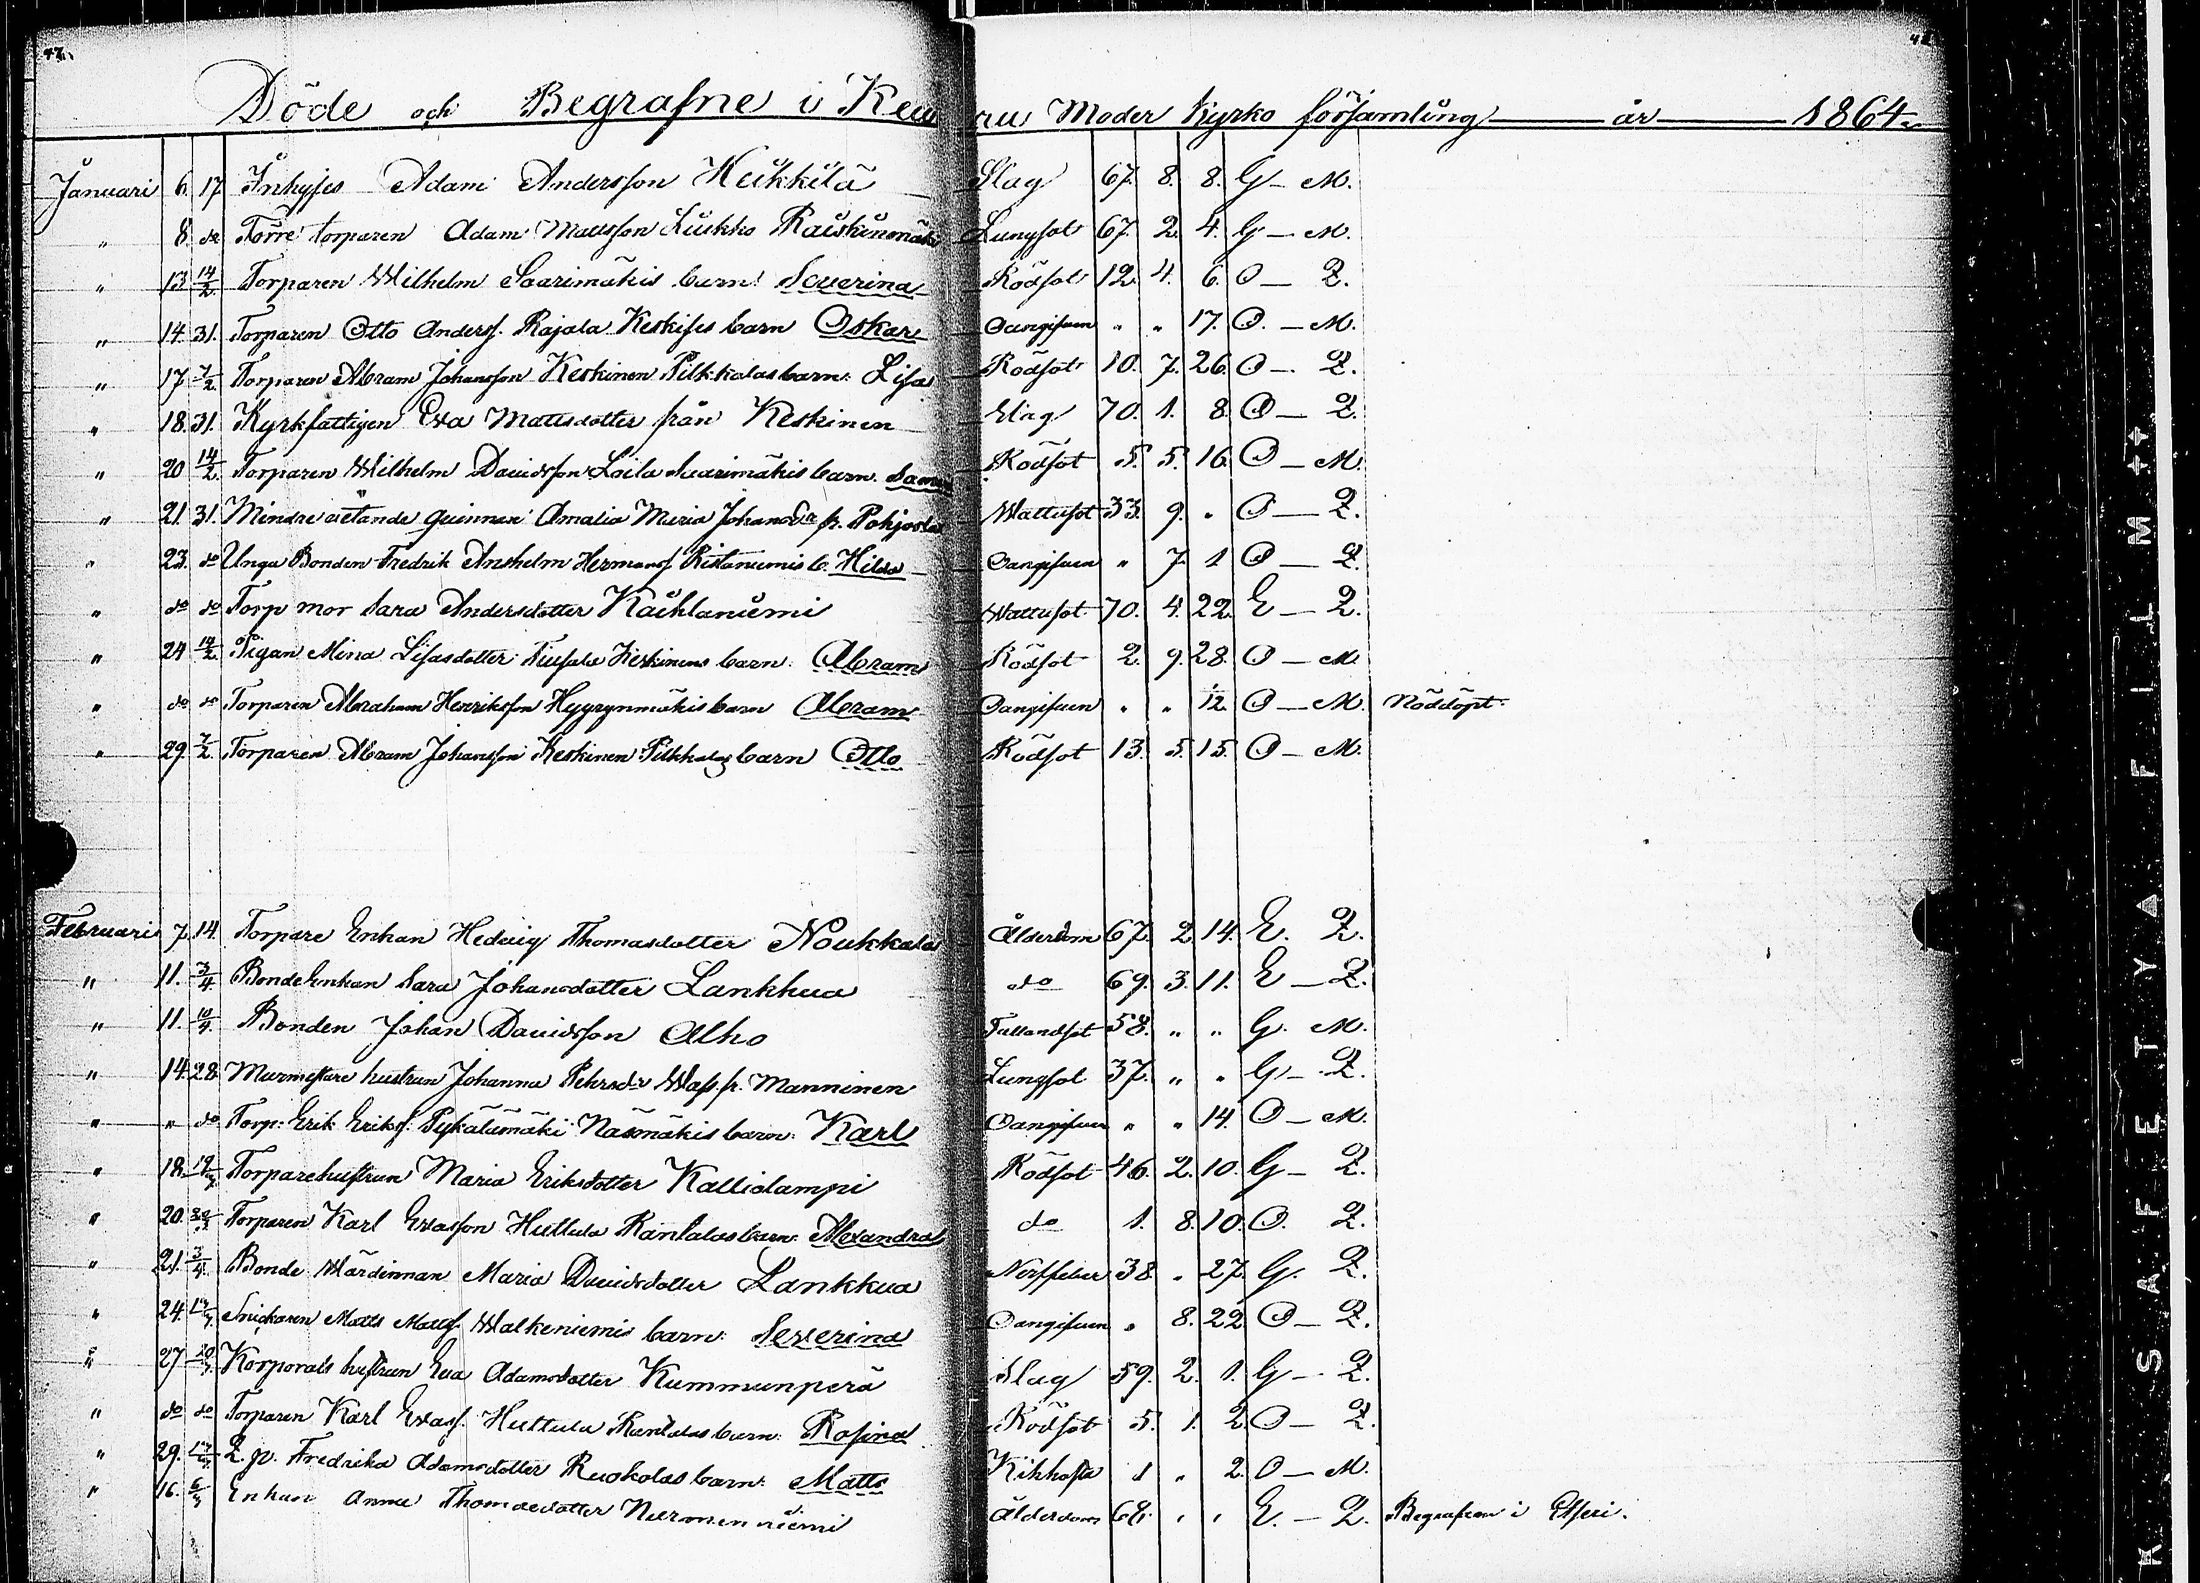 47.
48
Döde och Begrafne i Keuru Moder Kyrko församling år 1864.
Januari 6. 17 Inhyses Adam Andersson Heikkilä Slag 67. 8. 8. G – M.
" 8. do Förre torparen Adam Mattsson Liukko Raiskinmäki Lungsot 67. 2. 4. G – M.
" 13 14/2 Torparen Wilhelm Saarimäkis barn: Severina Rödsot 12. 4. 6. O – Q.
" 14. 31. Torparen Otto Anderss. Rajala Keskises barn Oskar Oangifven " " 17. O. – M.
" 17 7/2 Torparen Abram Johansson Keskinen Pilkkalas barn: Lisa Rödsot 10. 7. 26. O – Q.
" 18. 31. Kyrkfattigen Eva Mattsdotter från Keskinen Slag 70. 1. 8. O – Q.
" 20 14/2 Torparen Wilhelm Davidsson Loila Saarimäkis barn. Rödsot 5. 5. 16. O – M.
" 21. 31. Mindre vetande qvinnan Amalia Maria Johansdr fr. Pohjosla Wattusot 33. 9. " O – Q.
" 23. do Unga Bonden Fredrik Anshelm Hermanss. Ristaniemis b. Hilda Oangifven " 7. 1 O – Q.
" do do Torp mor Sara Andersdotter Kaihlaniemi Wattusot 70. 4. 22. E – Q.
" 24 14/2 Pigan Mina Lisasdotter Keskinens barn: Abram Rödsot 2. 9. 28. O – M.
" do do Torparen Abraham Henriksson Hyyrynmäkis barn Abram Oangifven " " 1/12 O – M. Nöddöpt.
" 29. 7/2 Torparen Abram Johansson Keskinen Pilkkalas barn Otto Rödsot 13. 5. 15. O – M.
Februari 7. 14 Torpare Enkan Hedvig Thomasdotter Noukkala Ålderdom 67. 2. 14. E. Q.
" 11. 3/4 Bonde Enkan Sara Johansdotter Lankkua do 69. 3. 11. E – Q.
" 11. 10/4 Bonden Johan Davidsson Alho Fallandsot 58. " " G. M.
" 14. 28. Murmestare hustrun Johanna Pehrsdr Wass. fr. Manninen Lungsot 37. " " G – Q.
" " do Torp: Erik Erikss. Pykälämäki Näsmäkis barn: Karl Oangifven " " 14. O – M.
" 18. Torparehustrun Maria Eriksdotter Kalliolampi Rödsot 46. 2. 10. G – Q.
" 20. Torparen Karl Evasson Huttula Rantalas barn: Alexandra do 1. 8. 10. O. Q.
" 21. 3/4. Bonde Wärdinnan Maria Davidsdotter Lankkua Nerffeber 38. " 27. G. Q.
" 24. Snickaren Matts Matss. Walkeniemis barn: Severina Oangifven " 8. 22. O – Q.
" 27 Korporals hustrun Eva Adamsdotter Kummunperä Slag 59. 2. 1. G – Q.
" do do Torparen Karl Evass. Huttula Rantalas barn: Rosina Rödsot 5. 1. 2. O – Q.
" 29. Q. p. Fredrika Adamsdotter Ruokolas barn: Matts Kikhosta 1 " 2. O – M.
" 16. Enkan Anna Thomasdotter Niemenniemi Ålderdom 68. " " E. – Q. Begrafven i Etseri.
SAFETY A FILM